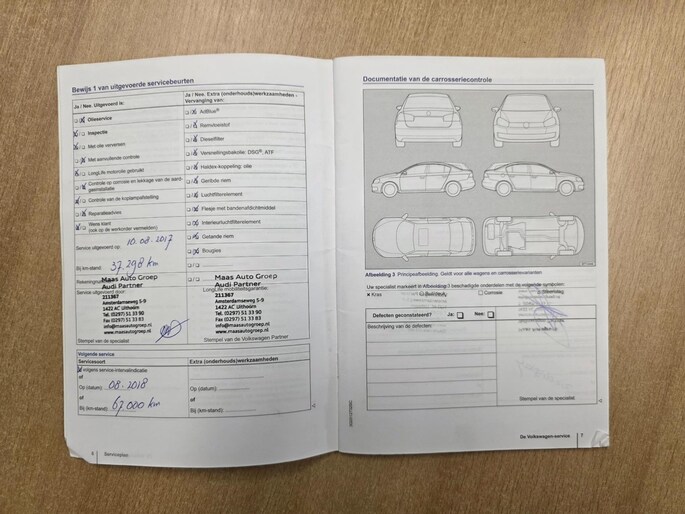 Bewijs 1 van uitgevoerde servicebeurten
Ja / Nee. Uitgevoerd is:
Olieservice
Inspectie
Met olie verversen
Met aanvullende controle
LongLife motorolie gebruikt
Controle op corrosie en lekkage van de aardgasinstallatie
Controle van de koplampafstelling
Reparatieadvies
Wens klant
(ook op de werkorder vermelden)
Service uitgevoerd op: 10.08-2017
Bij km-stand: 37.298 km
Maas Auto Groep
Audi Partner
211367
Amsterdamseweg 5-9
1422 AC Uithoorn
Tel. (0297) 51 33 90
Fax (0297) 51 33 83
info@maasautogroep.nl
www.maasautogroep.nl
Stempel van de specialist
Ja / Nee. Extra (onderhouds)werkzaamheden -
Vervanging van:
AdBlue®
Remvloeistof
Dieselfilter
Versnellingsbakolie: DSG®, ATF
Haldex-koppeling: olie
Geribde riem
Luchtfilterelement
Flesje met bandenafdichtmiddel
Interieurluchtfilterelement
Getande riem
Bougies
Maas Auto Groep
Audi Partner
LongLife mobiliteitsgarantie:
211367
Amsterdamseweg 5-9
1422 AC Uithoorn
Tel. (0297) 51 33 90
Fax (0297) 51 33 83
info@maasautogroep.nl
www.maasautogroep.nl
Stempel van de Volkswagen Partner
Volgende service
Servicesoort
volgens service-intervalindicatie
of
Op (datum): 08-2018
of
Bij (km-stand): 67.000 km
Extra (onderhouds)werkzaamheden
Op (datum):
of
Bij (km-stand):
6 Serviceplan
Documentatie van de carrosseriecontrole
Afbeelding 3 Principeafbeelding: Geldt voor alle wagens en carrosserievarianten
Uw specialist markeert in Afbeelding 3 beschadigde onderdelen met de volgende symbolen:
× Kras
Corrosie
Defecten geconstateerd? Ja: Nee:
Beschrijving van de defecten:
Stempel van de specialist
De Volkswagen-service 7